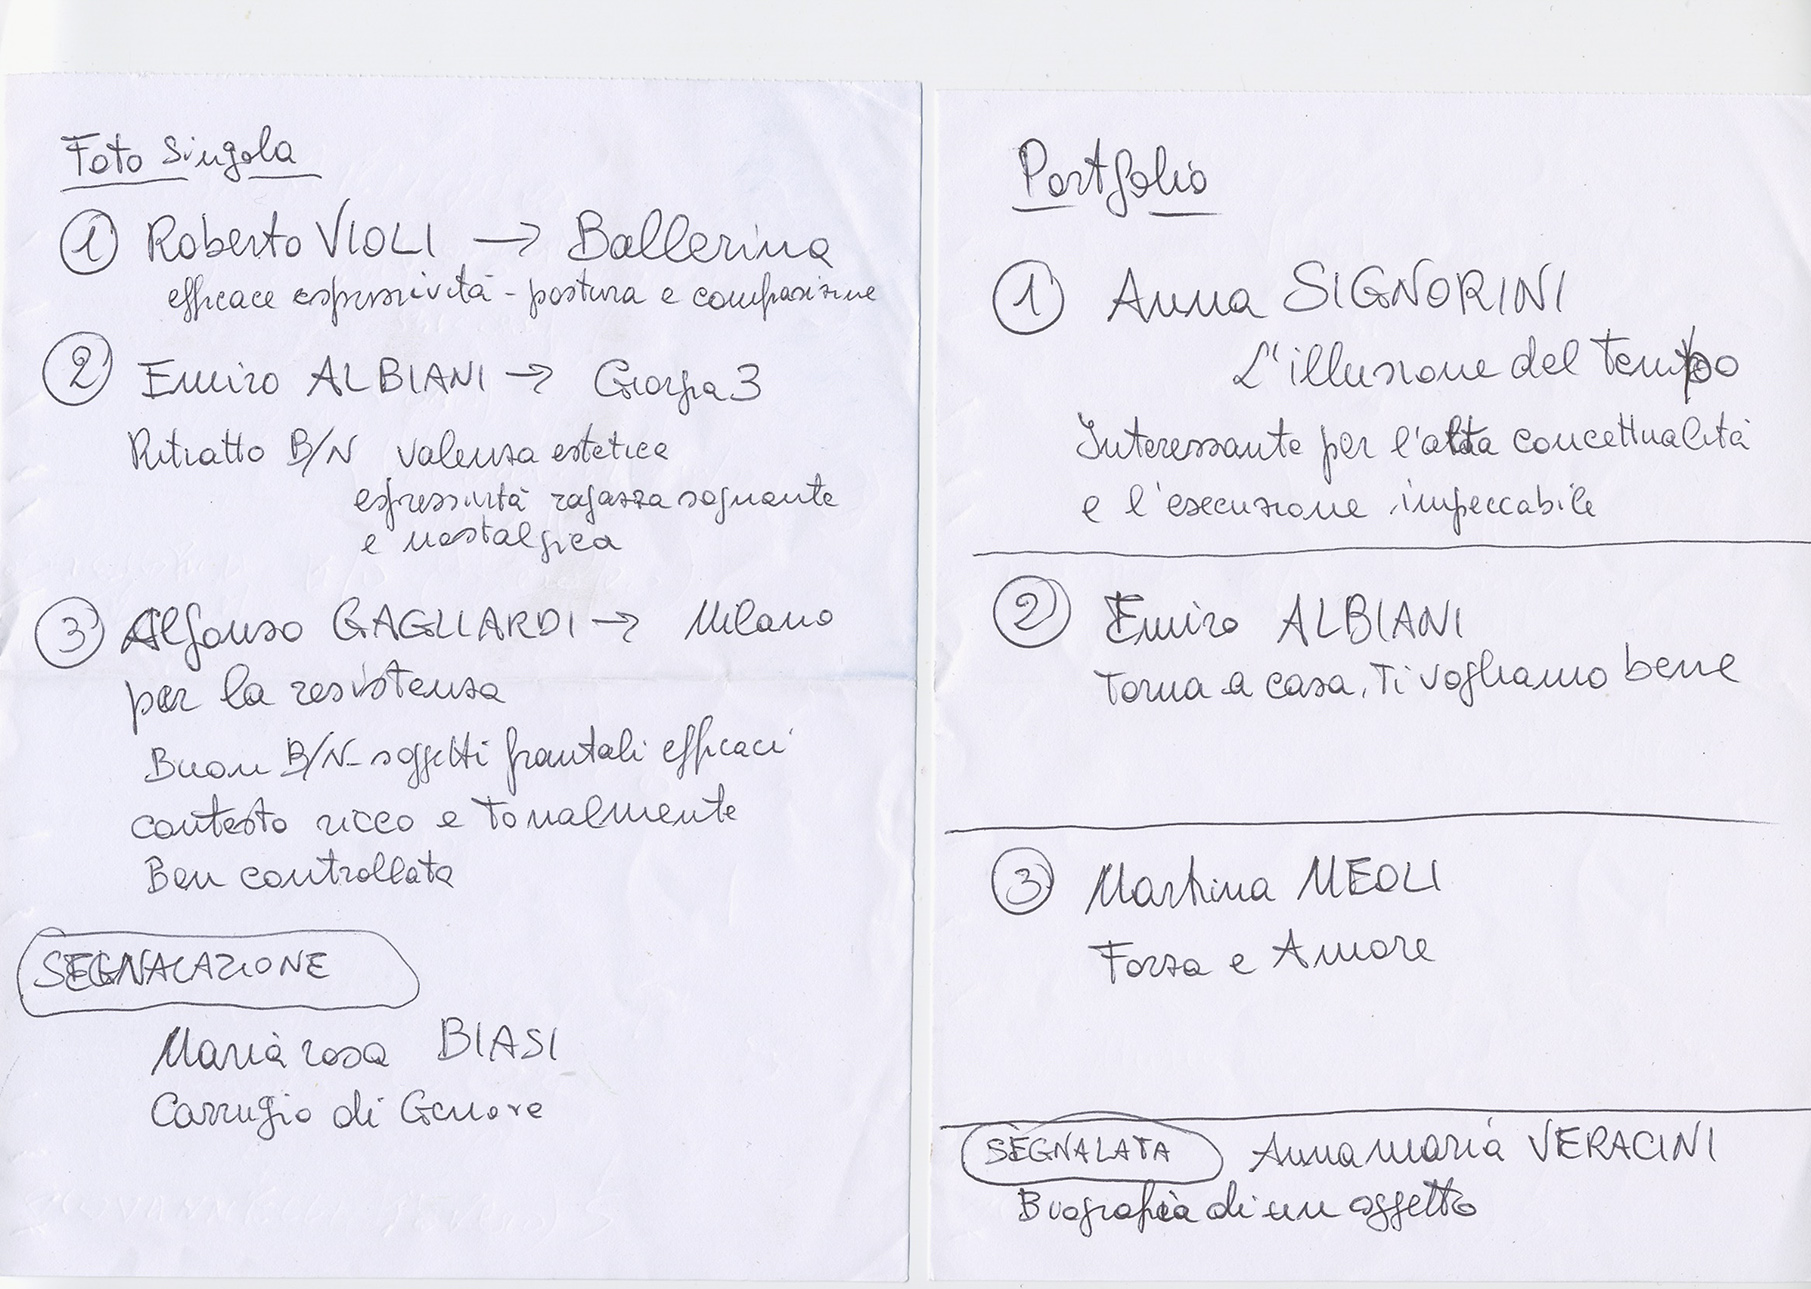 Foto Singola
1 Roberto VIOLI → Ballerina
efficace espressività - postura e composizione
2 Emiro ALBIANI → Giorgia 3
Ritratto B/N valenza estetica
espressività ragazza sognante
e nostalgica
3 Alfonso GAGLIARDI → Milano
per la resistenza
Buon B/N - soggetti frontali efficaci
contesto ricco e tonalmente
Ben controllato
SEGNALAZIONE
Maria rosa BIASI
Carrugio di Genova
Portfolio
1 Anna SIGNORINI
L'illusione del tempo
Interessante per l'alta concettualità
e l'esecuzione impeccabile
2 Emiro ALBIANI
Torna a casa, Ti vogliamo bene
3 Martina MEOLI
Forza e Amore
SEGNALATA Annamaria VERACINI
Biografia di un oggetto